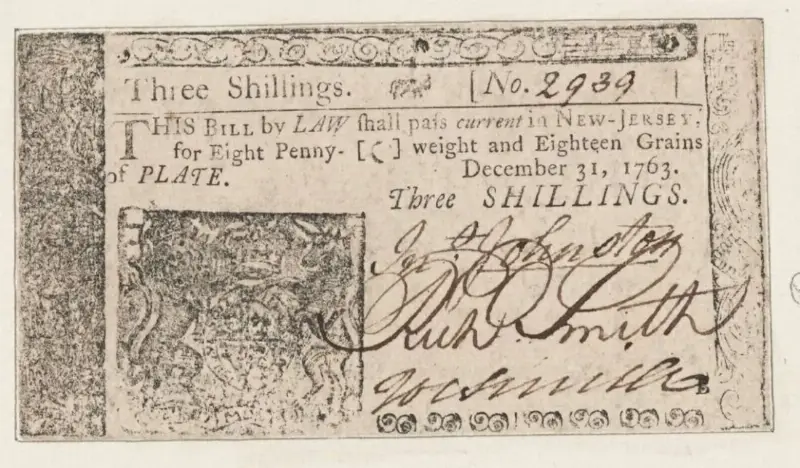 Three Shillings. [No. 2939 ]
THIS BILL by LAW shall pass current in NEW-JERSEY,
for Eight Penny-[ ] weight and Eighteen Grains
of PLATE. December 31, 1763.
Three SHILLINGS.
Johnston
Richd. Smith
B